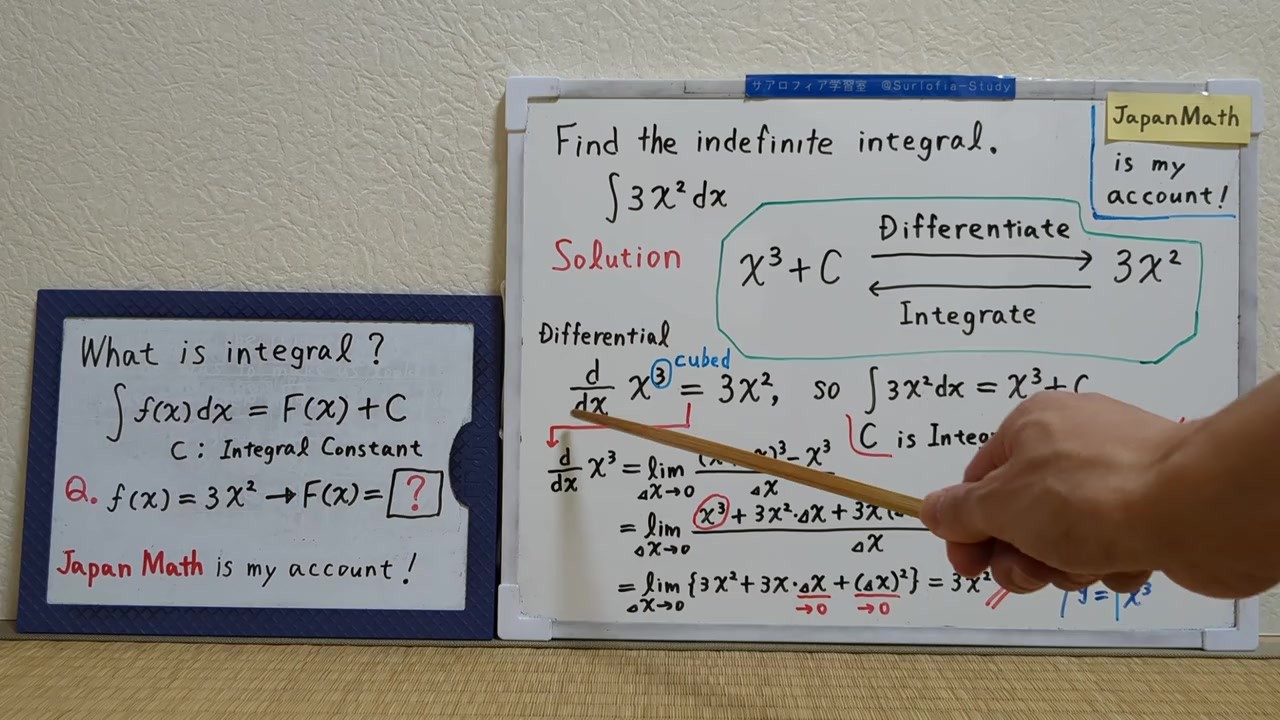 What is integral?
∫f(x)dx = F(x) + C
C : Integral Constant
Q. f(x) = 3x² → F(x) = ?
Japan Math is my account!
サアロフィア学習室 @Surlofia-Study
JapanMath
is my
account!
Find the indefinite integral.
∫3x²dx
Solution
Differentiate
x³ + C 3x²
Integrate
Differential
cubed
d/dx x³ = 3x², so ∫3x²dx = x³ + C
C is
d/dx x³ = lim Δx→0 )³ - x³ / Δx
= lim Δx→0 x³ + 3x²·Δx + 3x( / Δx
= lim Δx→0 {3x² + 3x·Δx + (Δx)²} = 3x²
→0 →0
y = x³